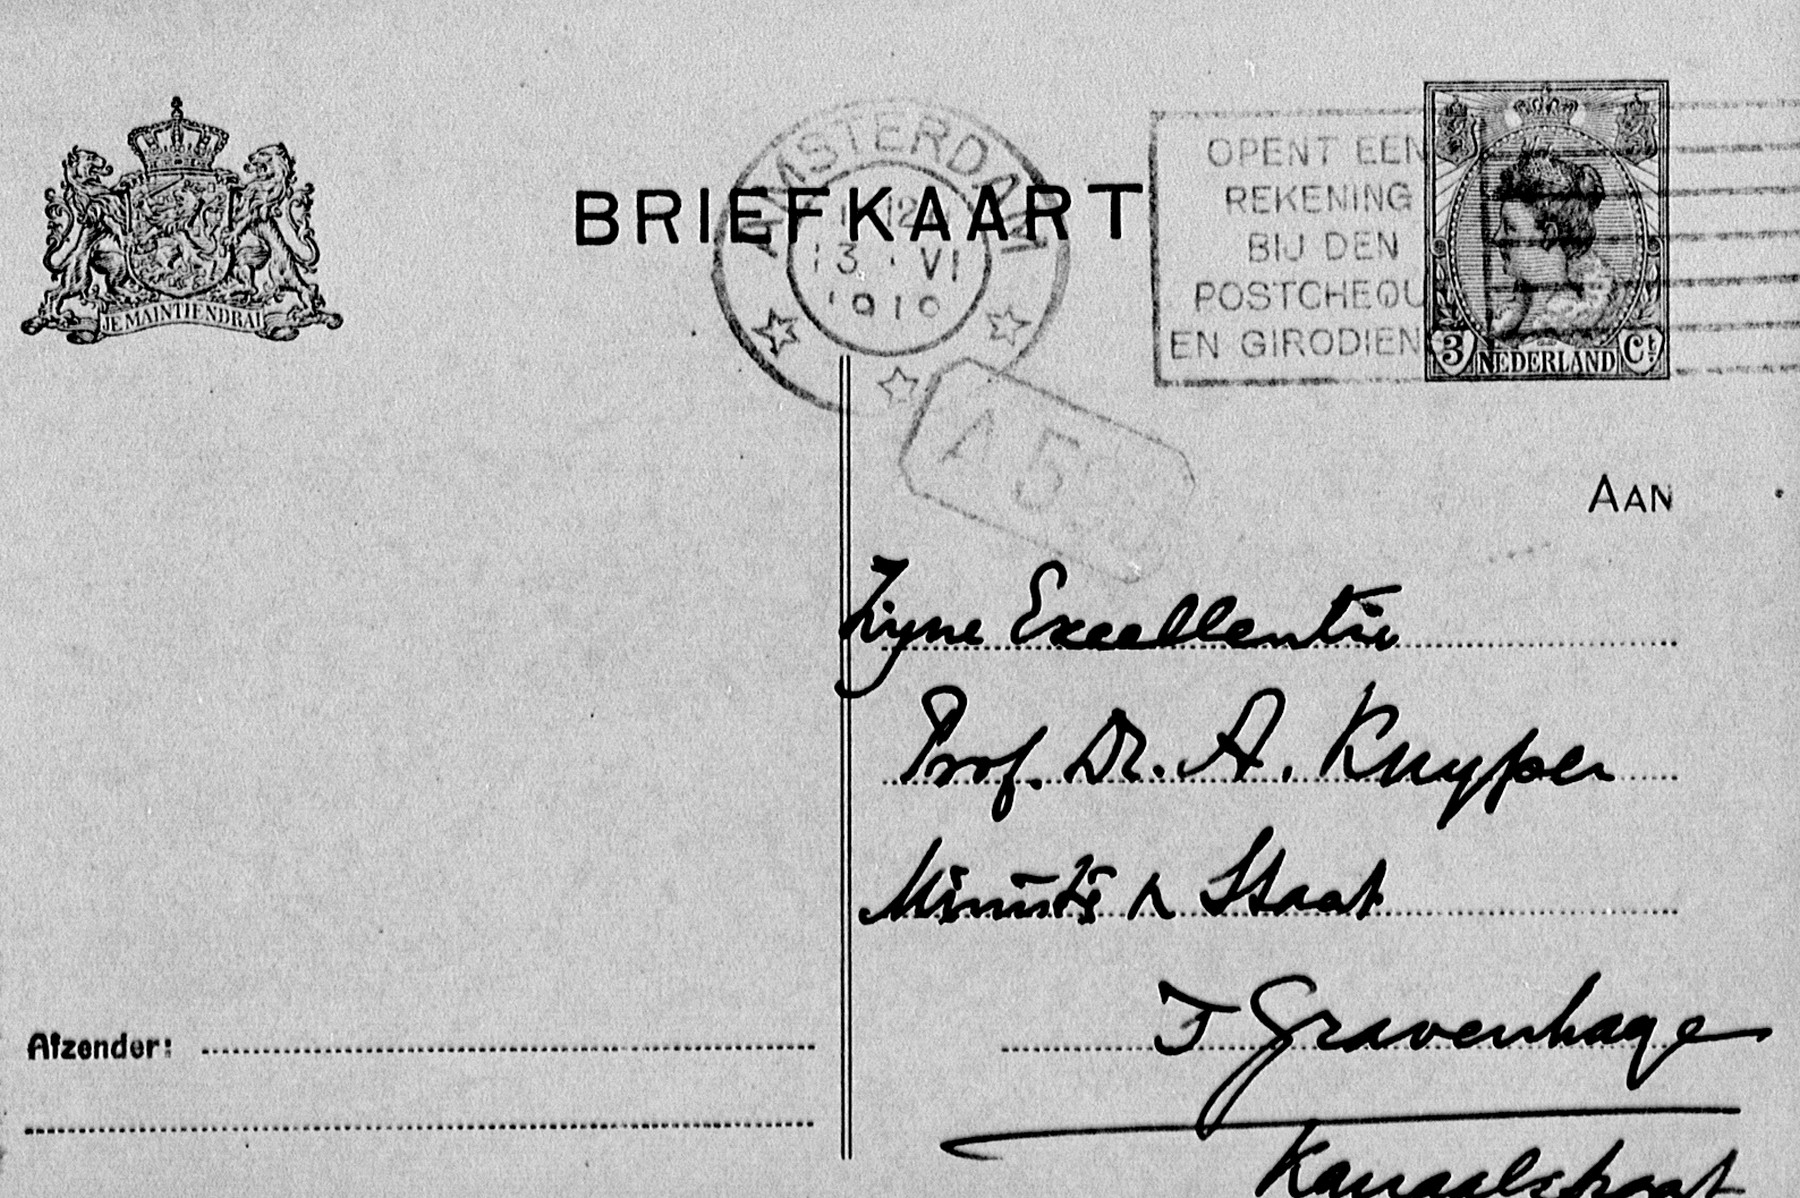 BRIEFKAART
AMSTERDAM
12
13 VI
1919
OPENT EEN
REKENING
BIJ DEN
POSTCHEQU
EN GIRODIEN
3 NEDERLAND Ct
JE MAINTIENDRAI
A 5
AAN
Zijne Excellentie
Prof. Dr. A. Kuyper
Minister v Staat
's Gravenhage
Kanaalstraat
Afzender: